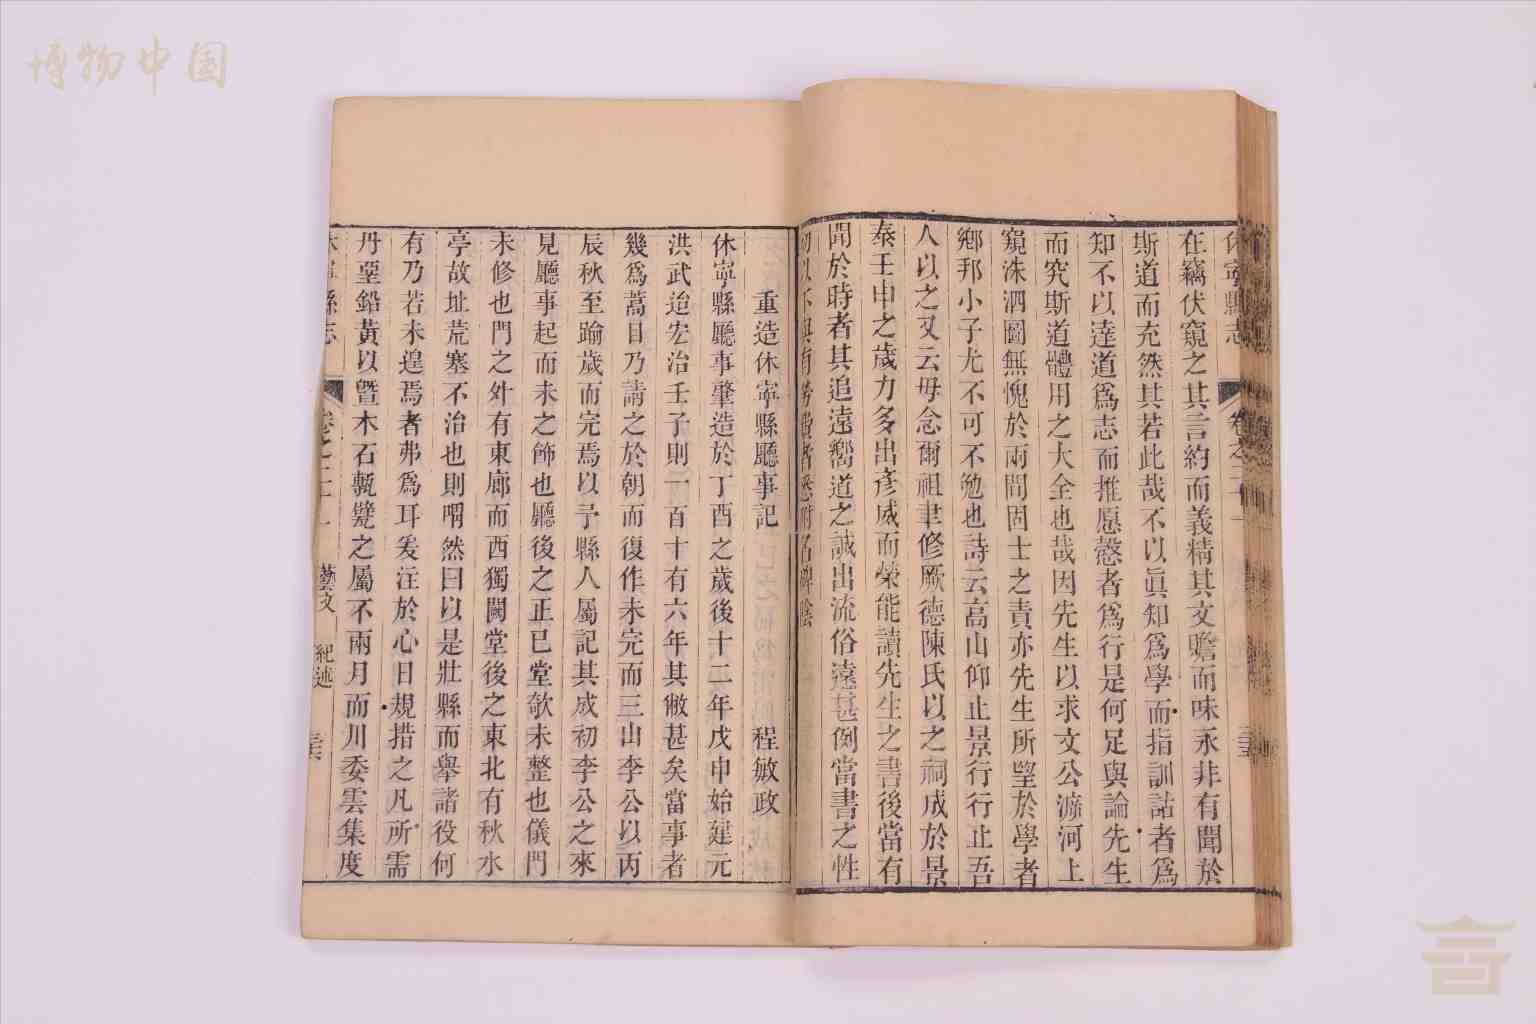 博物中国
休寧縣志
卷之二十一
在竊伏窺之其言約而義精其文贍而味永非有聞於
斯道而充然其若此哉不以眞知爲學而指訓詁者爲
知不以達道爲志而推愿慤者爲行是何足與論先生
而究斯道體用之大全也哉因先生以求文公泝河上
窺洙泗圖無愧於兩間固士之責亦先生所望於學者
鄉邦小子尤不可不勉也詩云高山仰止景行行止吾
人以之又云毋念爾祖聿修厥德陳氏以之祠成於景
泰壬申之歲力多出彥威而榮能讀先生之書後當有
聞於時者其追遠嚮道之誠出流俗遠甚例當書之性
初以下與有勞費者悉附名碑陰
重造休寧縣廳事記 程敏政
休寧縣廳事肇造於丁酉之歲後十二年戊申始建元
洪武迨宏治壬子則一百十有六年其敝甚矣當事者
幾爲蒿目乃請之於朝而復作未完而三山李公以丙
辰秋至踰歲而完焉以予縣人屬記其成初李公之來
見廳事起而未之飾也廳後之正已堂欹未整也儀門
未修也門之外有東廊而西獨闕堂後之東北有秋水
亭故址荒塞不治也則喟然曰以是壯縣而舉諸役何
有乃若未遑焉者弗爲耳爰注於心日規措之凡所需
丹堊鉛黃以曁木石甎甓之屬不兩月而川委雲集度
休寧縣志
卷之二十一
藝文
紀述